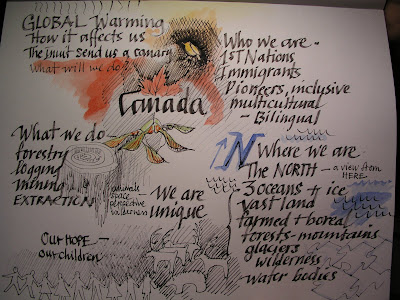 GLOBAL Warming
How it affects us
The inuit send us a canary
What will we do?
Canada
Who we are -
1st Nations
Immigrants
Pioneers, inclusive
multicultural
- Bilingual
What we do
forestry
logging
mining
EXTRACTION
animals
space
perspective
We are
unique
N
Where we are
The NORTH - a view from
HERE
3 oceans + ice
vast land
farmed + boreal
forests - mountains
glaciers
wilderness
water bodies
Our HOPE -
our children